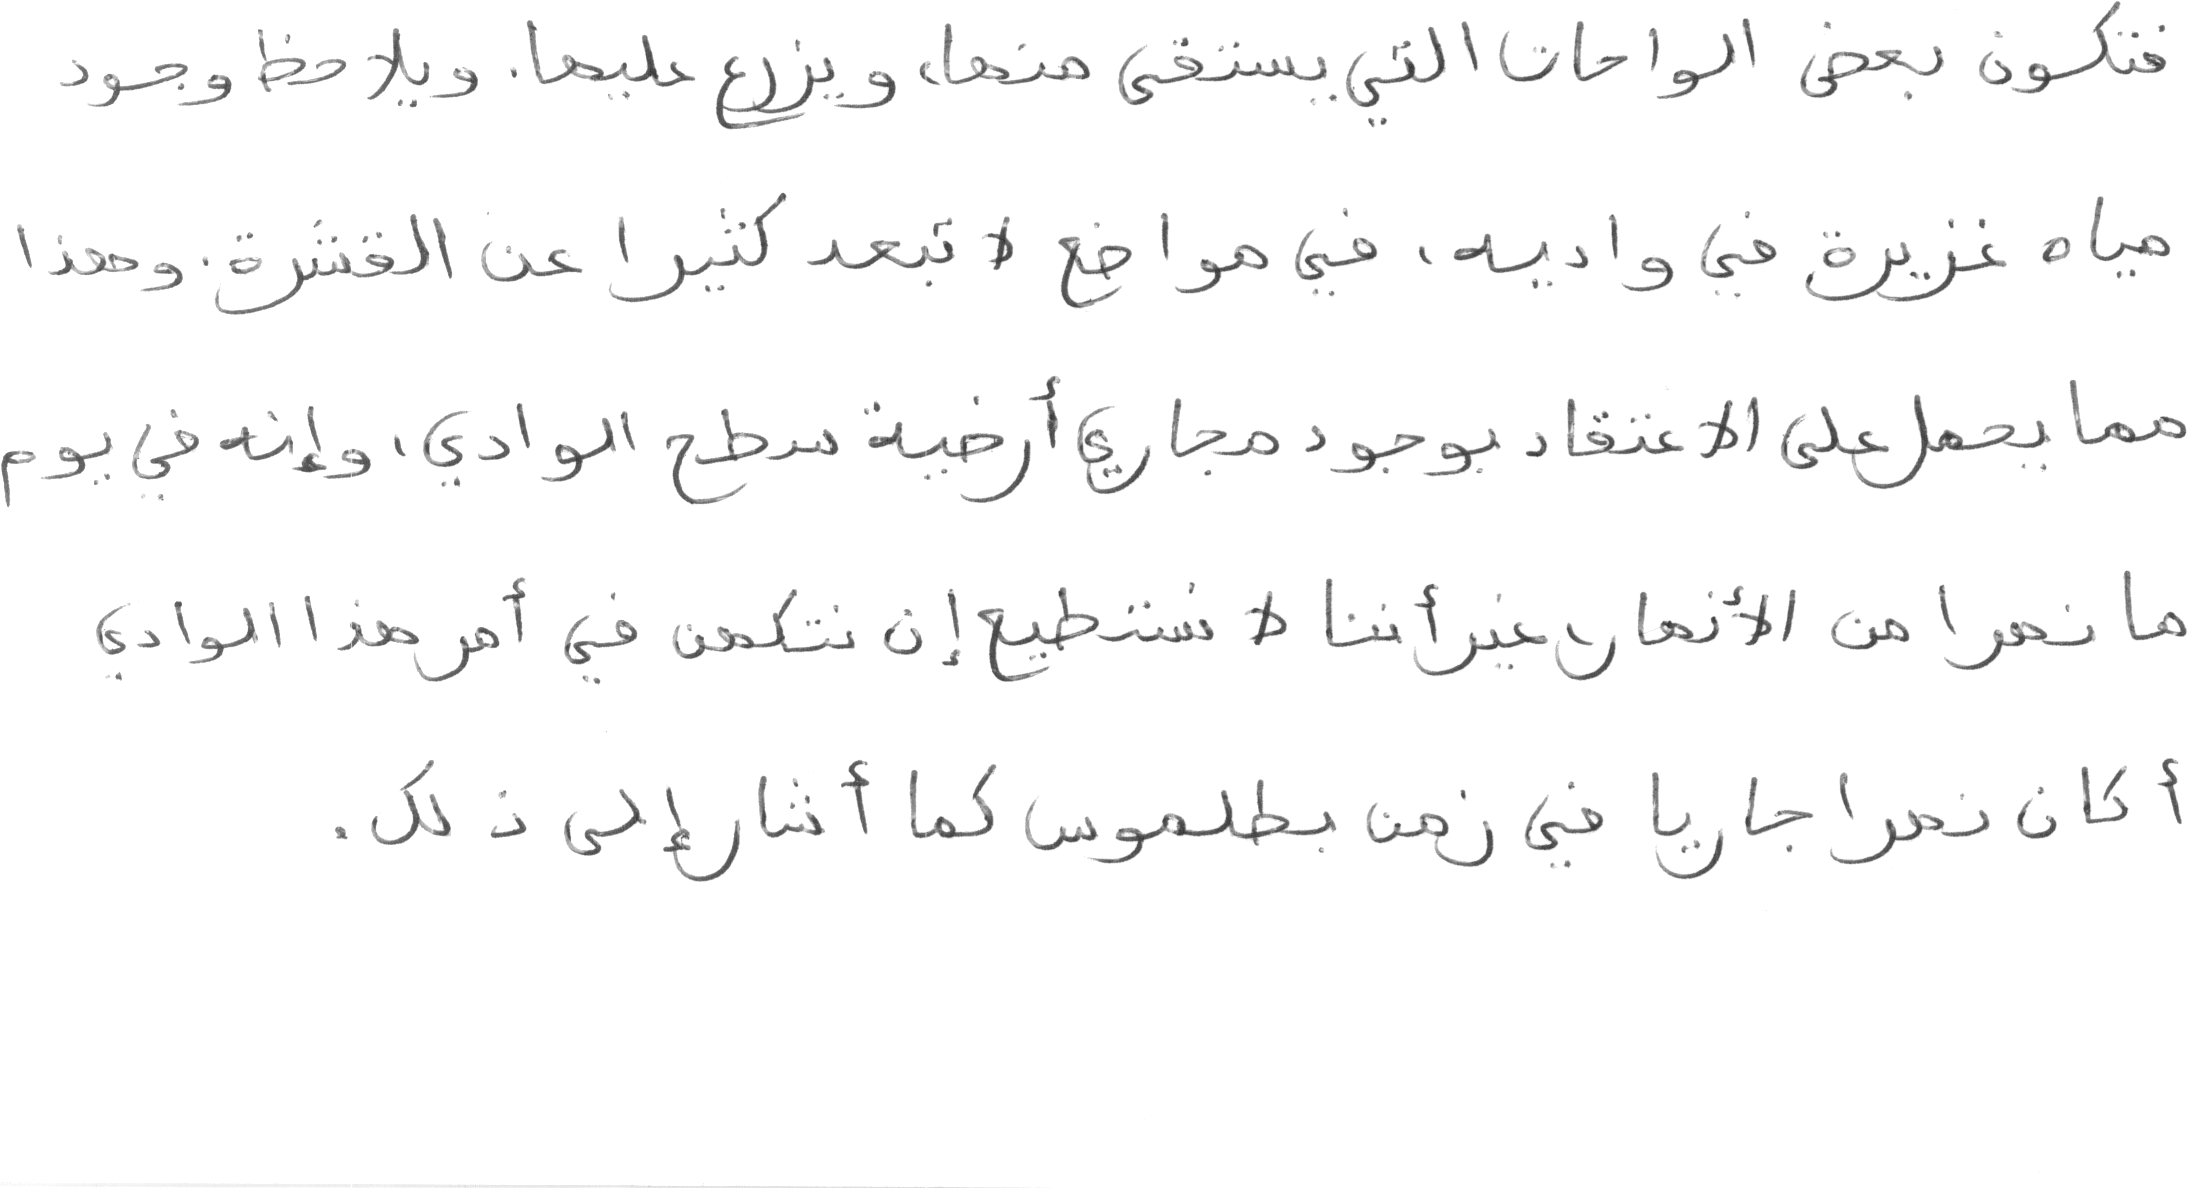 فتكون بعض الواحات التي يستقى منها، ويزرع عليها. ويلاحظ وجود
مياه غزيرة في واديه، في مواضع لا تبعد كثيرا عن القشرة. وهذا
مما يحمل على الاعتقاد بوجود مجاري أرضية سطح الوادي، وإنه في يوم
ما نهرا من الأنهار، غير أننا لا نستطيع إن نتكهن في أمر هذا الوادي
أكان نهرا جاريا في زمن بطلموس كما أشار إلى ذلك.